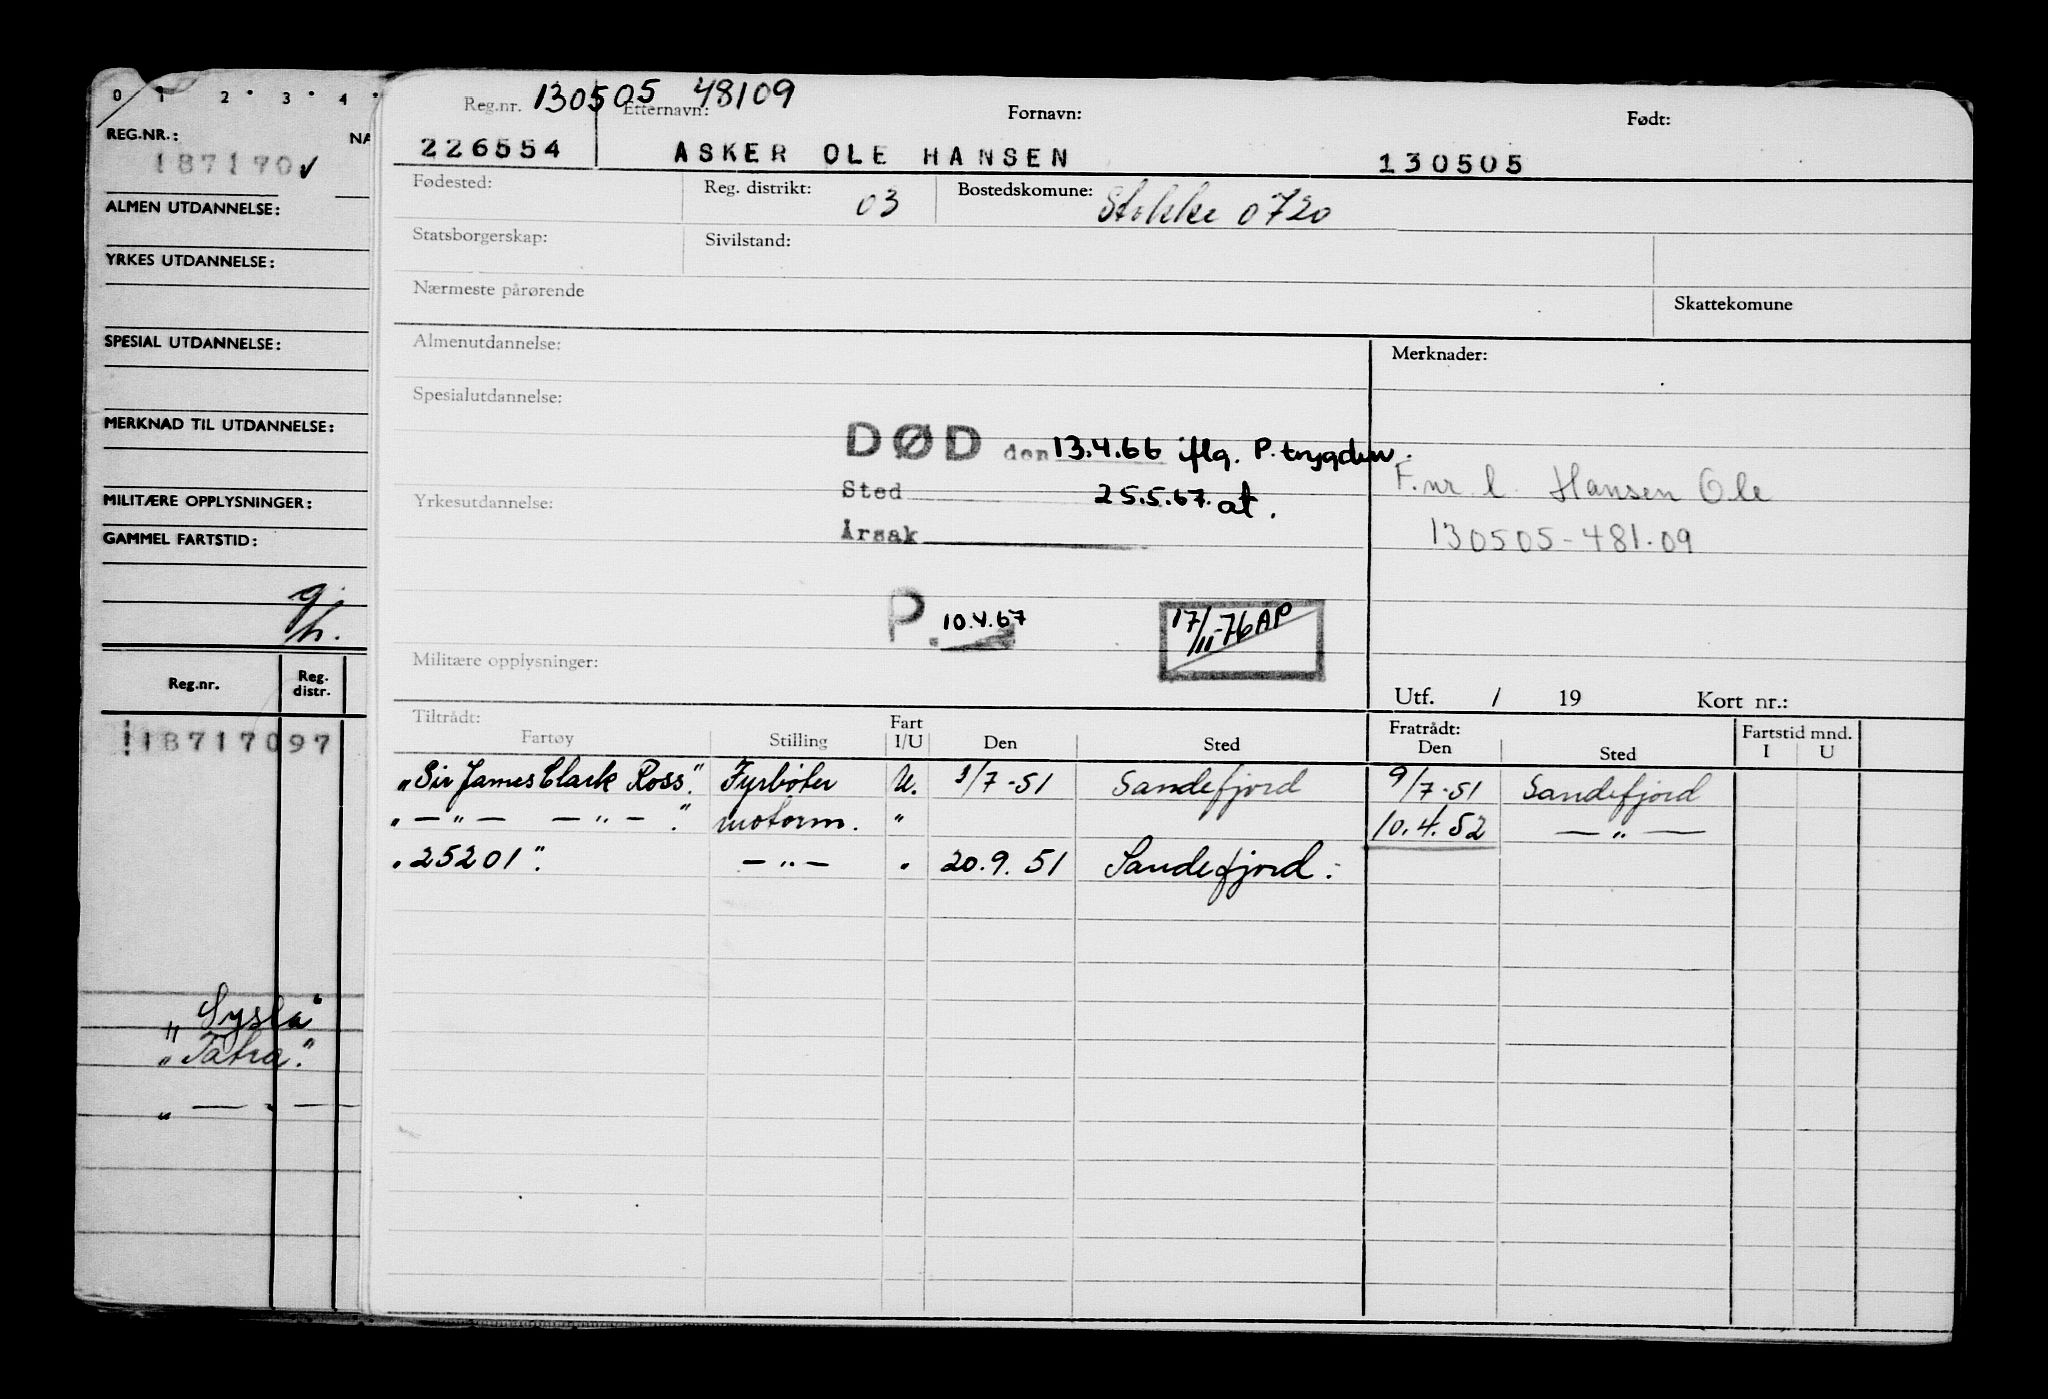 0 1 2 3 4
REG.NR.: NA
187170 ✓
ALMEN UTDANNELSE:
YRKES UTDANNELSE:
SPESIAL UTDANNELSE:
MERKNAD TIL UTDANNELSE:
MILITÆRE OPPLYSNINGER:
GAMMEL FARTSTID:
g.
h.
Reg.nr. Reg. distr.
18717097
„Sysla"
„Tatra."
„ — „ —
Reg.nr. 130505 Etternavn: 48109 Fornavn: Født:
226554 ASKER OLE HANSEN 130505
Fødested: Reg. distrikt: 03 Bostedskomune: Stokke 0720
Statsborgerskap: Sivilstand:
Nærmeste pårørende Skattekomune
Almenutdannelse: Merknader:
Spesialutdannelse:
DØD den 13.4.66 iflg. P. trygden.
Sted 25.5.67. at.
Yrkesutdannelse:
Årsak
F.nr l. Hansen Ole
130505-481.09
P. 10.4.67 17/11-76 AP
Militære opplysninger:
Utf. / 19 Kort nr.:
Tiltrådt: Fratrådt: Fartstid mnd.
Fartøy Stilling Fart I/U Den Sted Den Sted I U
„Sir James Clark Ross." Fyrbøter U. 1/7-51 Sandefjord 9/7-51 Sandefjord
„ — „ — — „ — ." motorm. " 10.4.52 — „ —
„25201". — „ — " 20.9.51 Sandefjord.